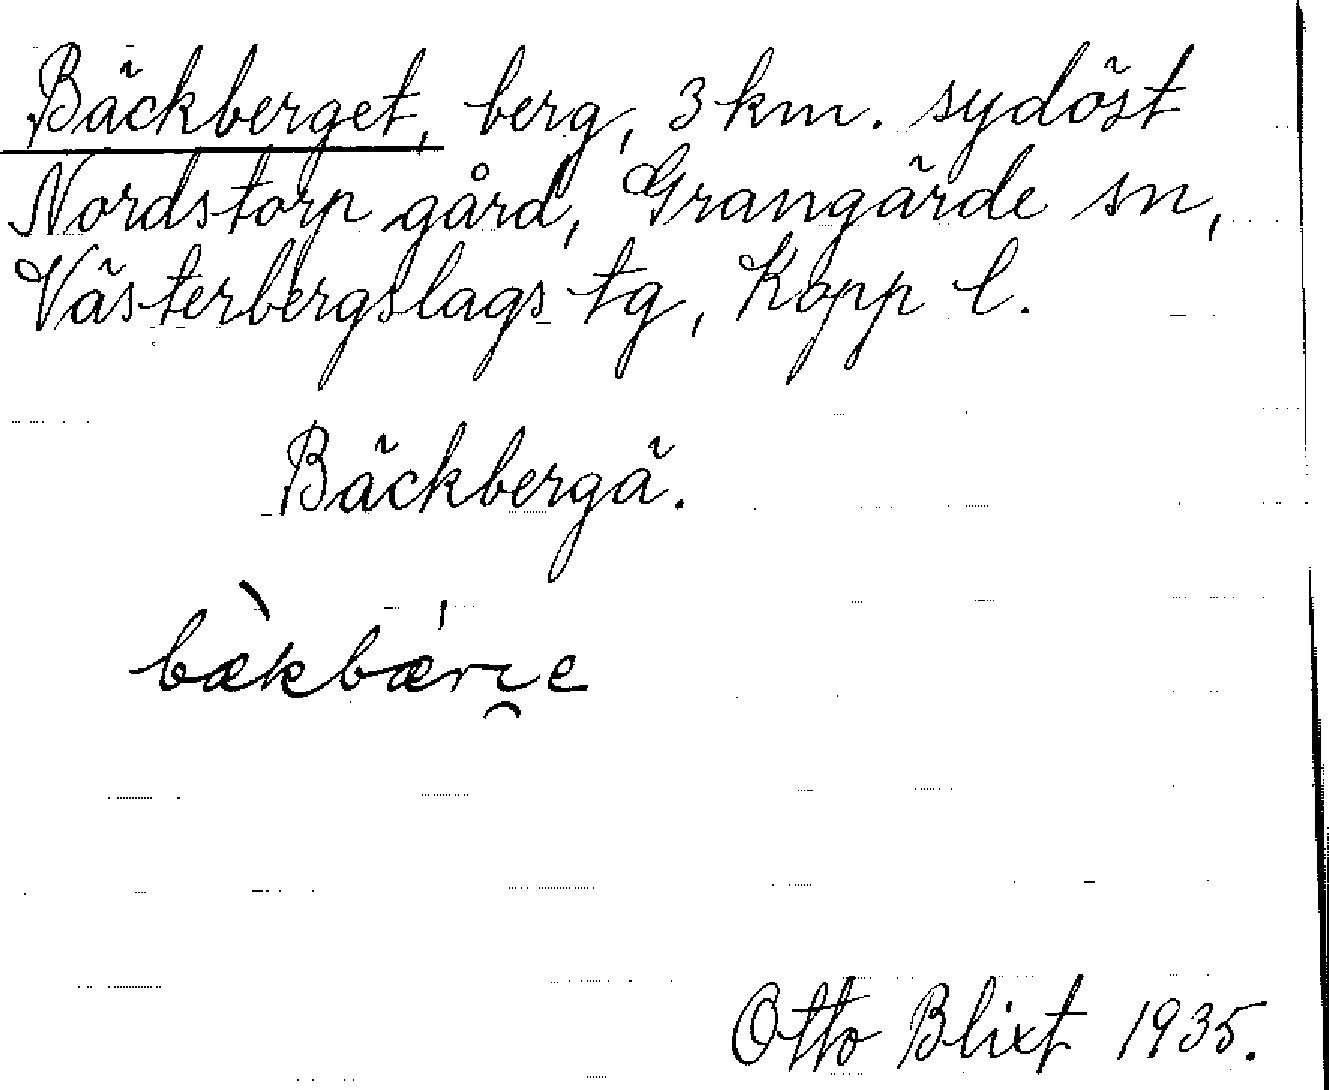 Bäckberget, berg, 3 km. sydöst
Nordstorp gård, Grangärde sn,
Västerbergslags tg, Kopp l.
Bäckbergä.
bæ̀kbǽrı̯e
Otto Blixt 1935.